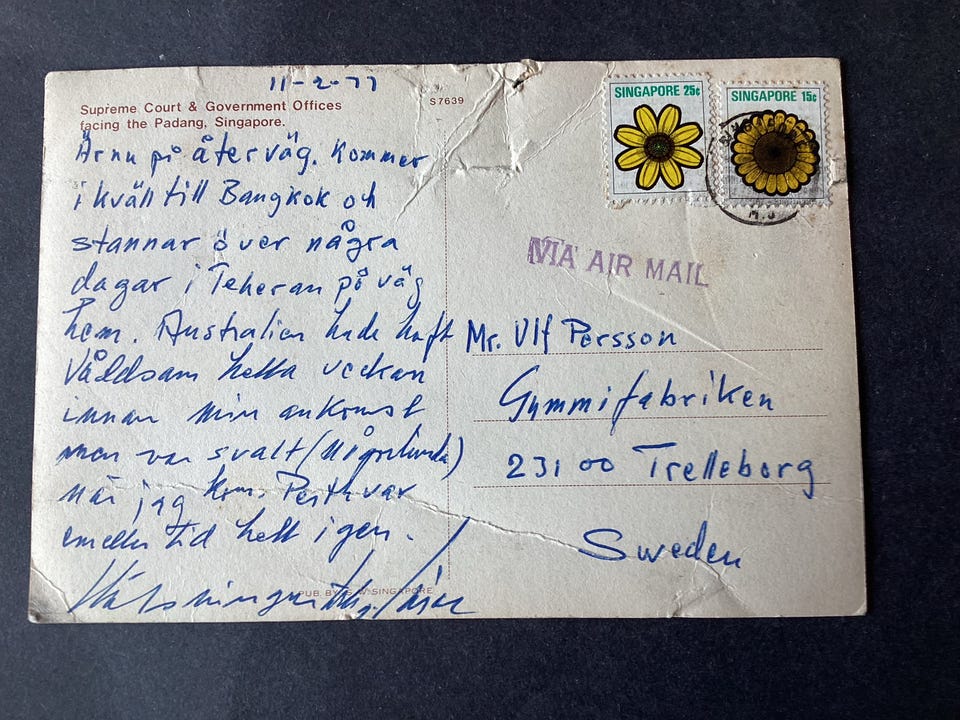 11-2-77
Supreme Court & Government Offices
facing the Padang, Singapore.
S7639
Är nu på återväg. Kommer
i kväll till Bangkok och
stannar över några
dagar i Teheran på väg
hem. Australien hade haft
våldsam hetta veckan
innan min ankomst
men var svalt (någorlunda)
när jag kom. Perth var
emellertid hett igen.
PUB. BY S.W. SINGAPORE.
SINGAPORE 25c
SINGAPORE 15c
VIA AIR MAIL
Mr. Ulf Persson
Gummifabriken
231 00 Trelleborg
Sweden